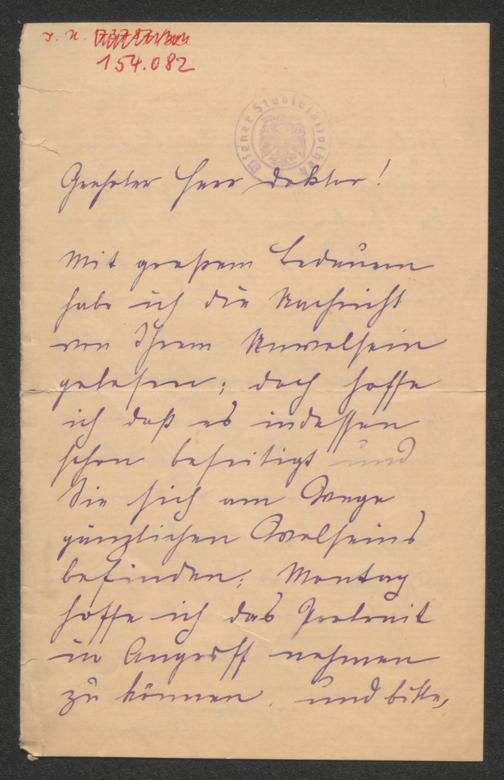 J. N.
154.082
Wiener Stadtbibliothek
Geehrter Herr Doktor!
Mit großem Bedauern
habe ich die Nachricht
von Ihrem Unwolsein
gelesen; doch hoffe
ich daß es indessen
schon beseitigt und
Sie sich am Wege
gänzlichen Wolseins
befinden; Montag
hoffe ich das Portrait
in Angriff nehmen
zu können, und bitte,